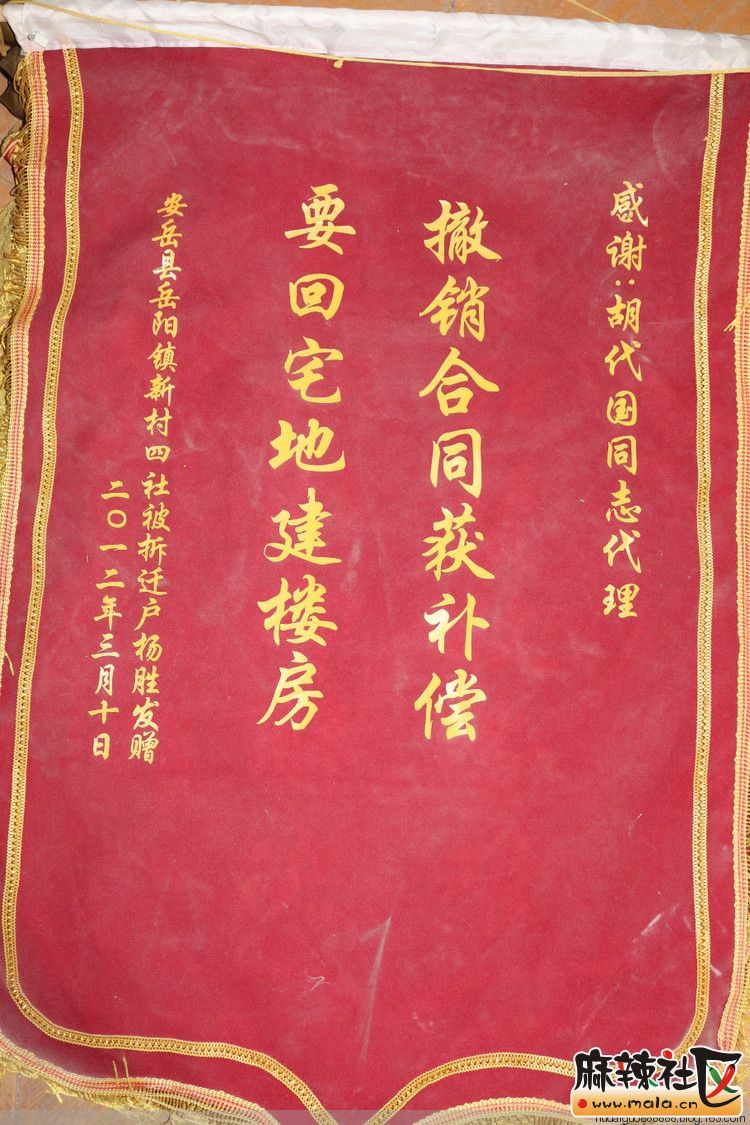 感谢：胡代国同志代理
撤销合同获补偿
要回宅地建楼房
安岳县岳阳镇新村四社被拆迁户杨胜发赠
二〇一二年三月十日
麻辣社区
www.mala.cn
hudaiguo888888.blog.163.com